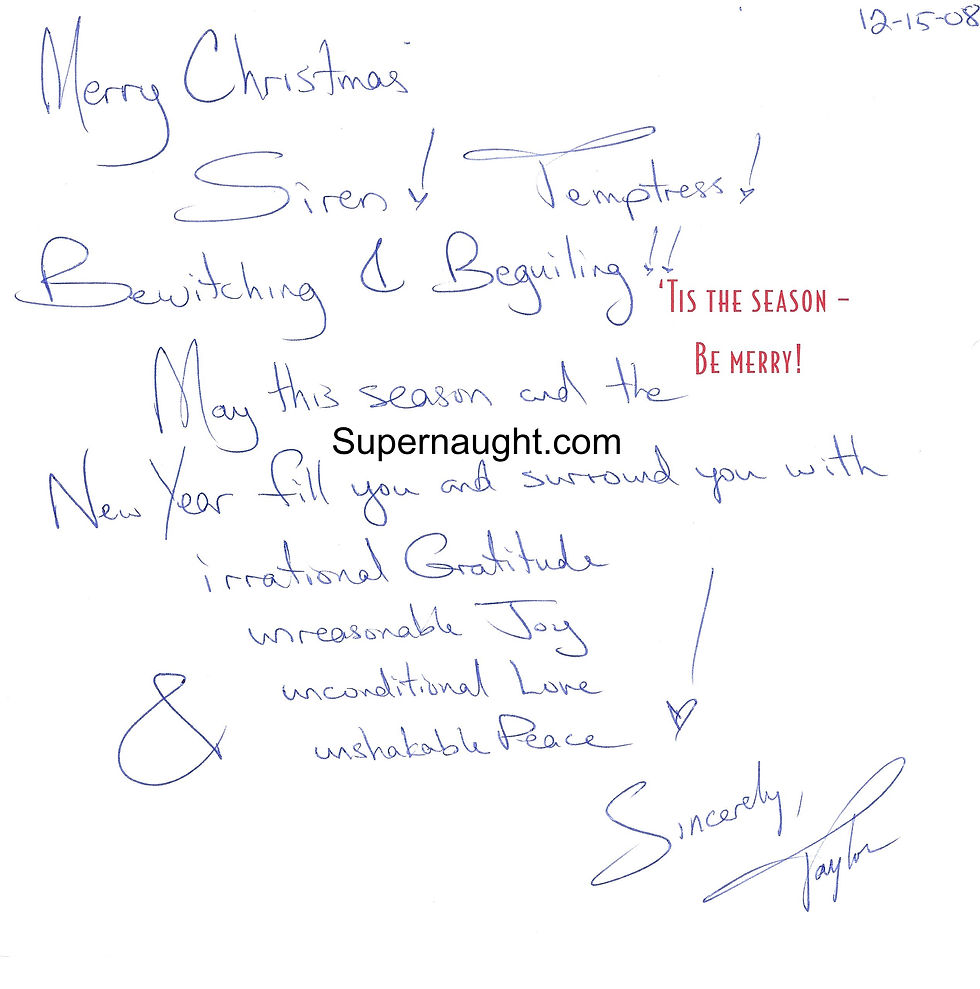 12-15-08
Merry Christmas
Siren! Temptress!
Bewitching & Beguiling!!
'Tis the season –
Be merry!
May this season and the
Supernaught.com
New Year fill you and surround you with
irrational Gratitude
unreasonable Joy
unconditional Love
& unshakable Peace!
Sincerely,
Taylor